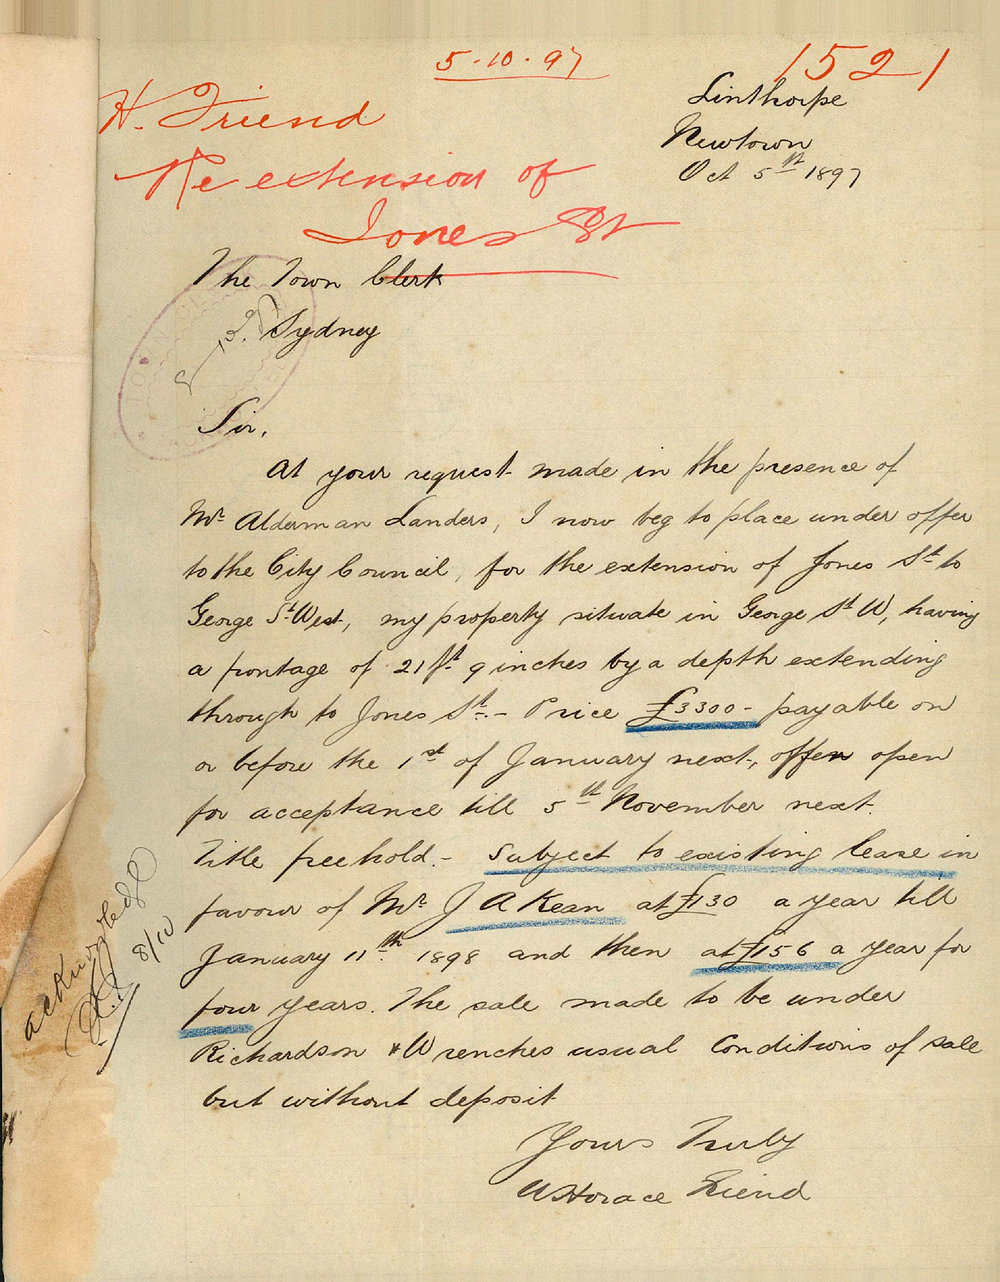 5.10.97
1521
H. Friend
Re extension of
Jones St
Linthorpe
Newtown
Oct 5th 1897
The Town Clerk
Sydney
Sir,
At your request made in the presence of
Mr Alderman Landers, I now beg to place under offer
to the City Council, for the extension of Jones St to
George St West, my property situate in George St W, having
a frontage of 21 ft 9 inches by a depth extending
through to Jones St. - Price £3300 - payable on
or before the 1st of January next, offer open
for acceptance till 5th November next.
Title freehold. - Subject to existing lease in
favour of Mr J A Kean at £130 a year till
January 11th 1898 and then at £156 a year for
four years. The sale made to be under
Richardson & Wrenches usual Conditions of sale
but without deposit
Yours Truly
W Horace Friend
acknowledge
8/10